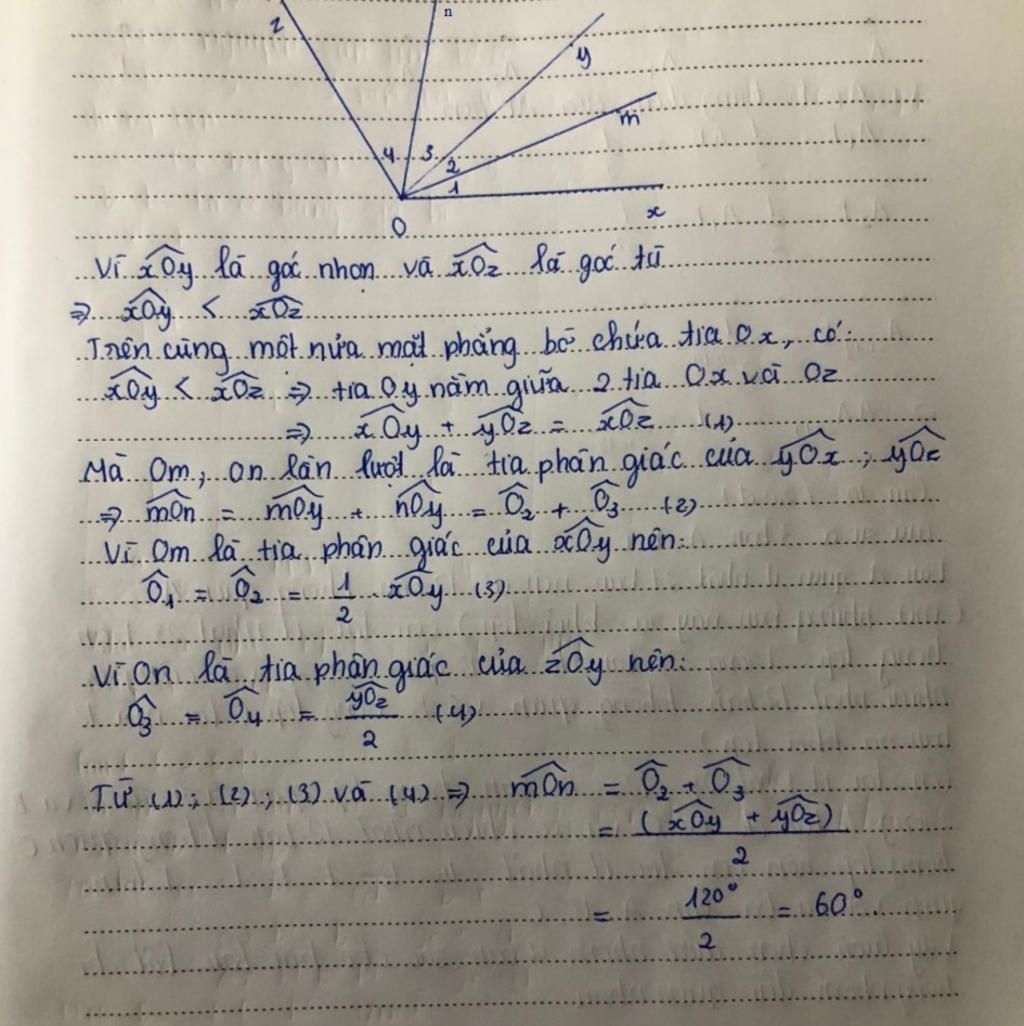 z n y m
4 3 2 1
O x
Vì xOy là góc nhọn và xOz là góc tù
⇒ xOy < xOz
Trên cùng một nửa mặt phẳng bờ chứa tia Ox, có:
xOy < xOz ⇒ tia Oy nằm giữa 2 tia Ox và Oz
⇒ xOy + yOz = xOz (1)
Mà Om, On lần lượt là tia phân giác của yOx; yOz
⇒ mOn = mOy + nOy = Ô₂ + Ô₃ (2)
Vì Om là tia phân giác của xOy nên:
Ô₁ = Ô₂ = 1/2 xOy (3)
Vì On là tia phân giác của zOy nên:
Ô₃ = Ô₄ = yOz/2 (4)
Từ (1); (2); (3) và (4) ⇒ mOn = Ô₂ + Ô₃
= (xOy + yOz)/2
= 120°/2 = 60°